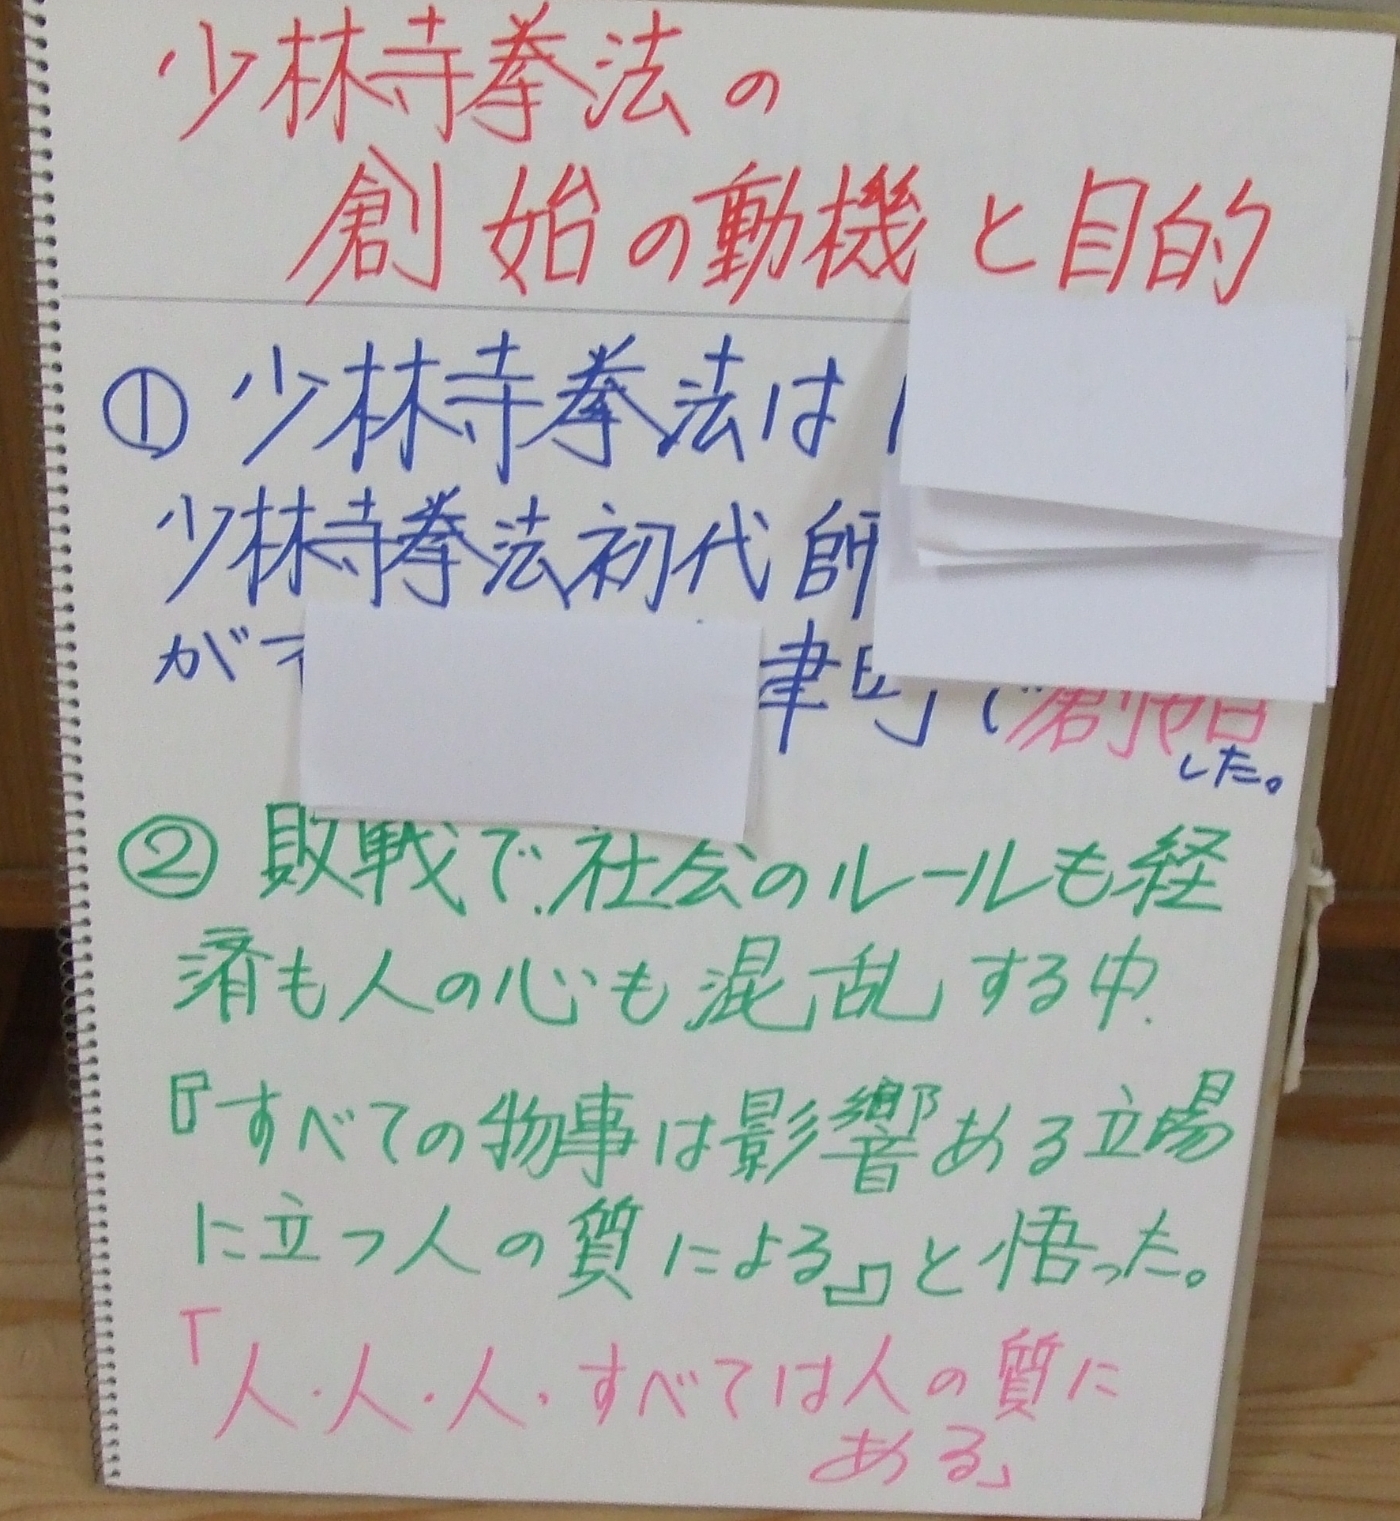 少林寺拳法の
創始の動機と目的
① 少林寺拳法は
少林寺拳法初代師
が 津町で創始
した。
② 敗戦で、社会のルールも経
済も人の心も混乱する中、
『すべての物事は影響ある立場
に立つ人の質による』と悟った。
「人・人・人・すべては人の質に
ある」